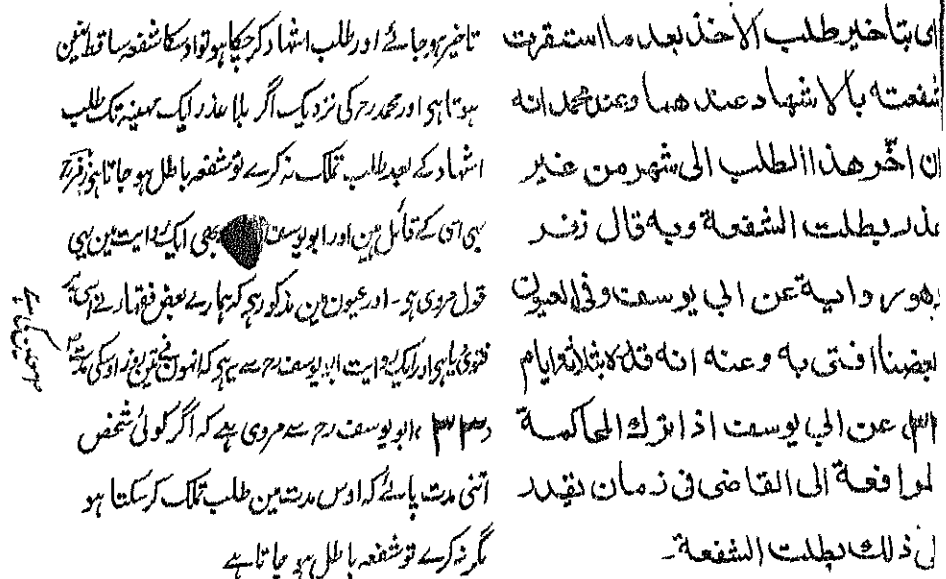 ای بتاخیر طلب الاخذ بعد ما استقرت
شفعته بالاشهاد عندهما وعند محمد انه
ان اخّر هذا الطلب الی شهر من غیر
عذر بطلت الشفعة وبه قال زفر
وهو روایة عن ابی یوسف وفی العیون
بعضنا افتی به وعنه انه قدره بثلاثة ایام
عن ابی یوسف اذا ترك المحاکمة
المرافعة الی القاضی فی زمان یقدر
فی ذلك بطلت الشفعة۔
تاخیر ہوجائے اور طلب اشہاد کرچکا ہو تو اوسکا شفعہ ساقط نہین
ہوتا ہی اور محمد رح کی نزدیک اگر بلا عذر ایک مہینہ تک طلب
اشہاد کے بعد طلب تملک نہ کرے تو شفعہ باطل ہو جاتا ہی زفر رح
بہی اسی کے قائل ہین اور ابو یوسف بھی ایک روایت مین یہی
قول مروی ہی۔ اور عیون مین مذکور ہی کہ ہمارے بعض فقہا نے اسی پر
فتوی دیا ہی اور ایک روایت ابو یوسف رح سے یہ ہی کہ انہون نے تین روز اوسکی مدت
۳۳ ابو یوسف رح سے مروی ہے کہ اگر کوئی شخص
اتنی مدت پائے کہ اوس مدت مین طلب تملک کرسکتا ہو
مگر نہ کرے تو شفعہ باطل ہو جاتا ہے
معین کی ہے